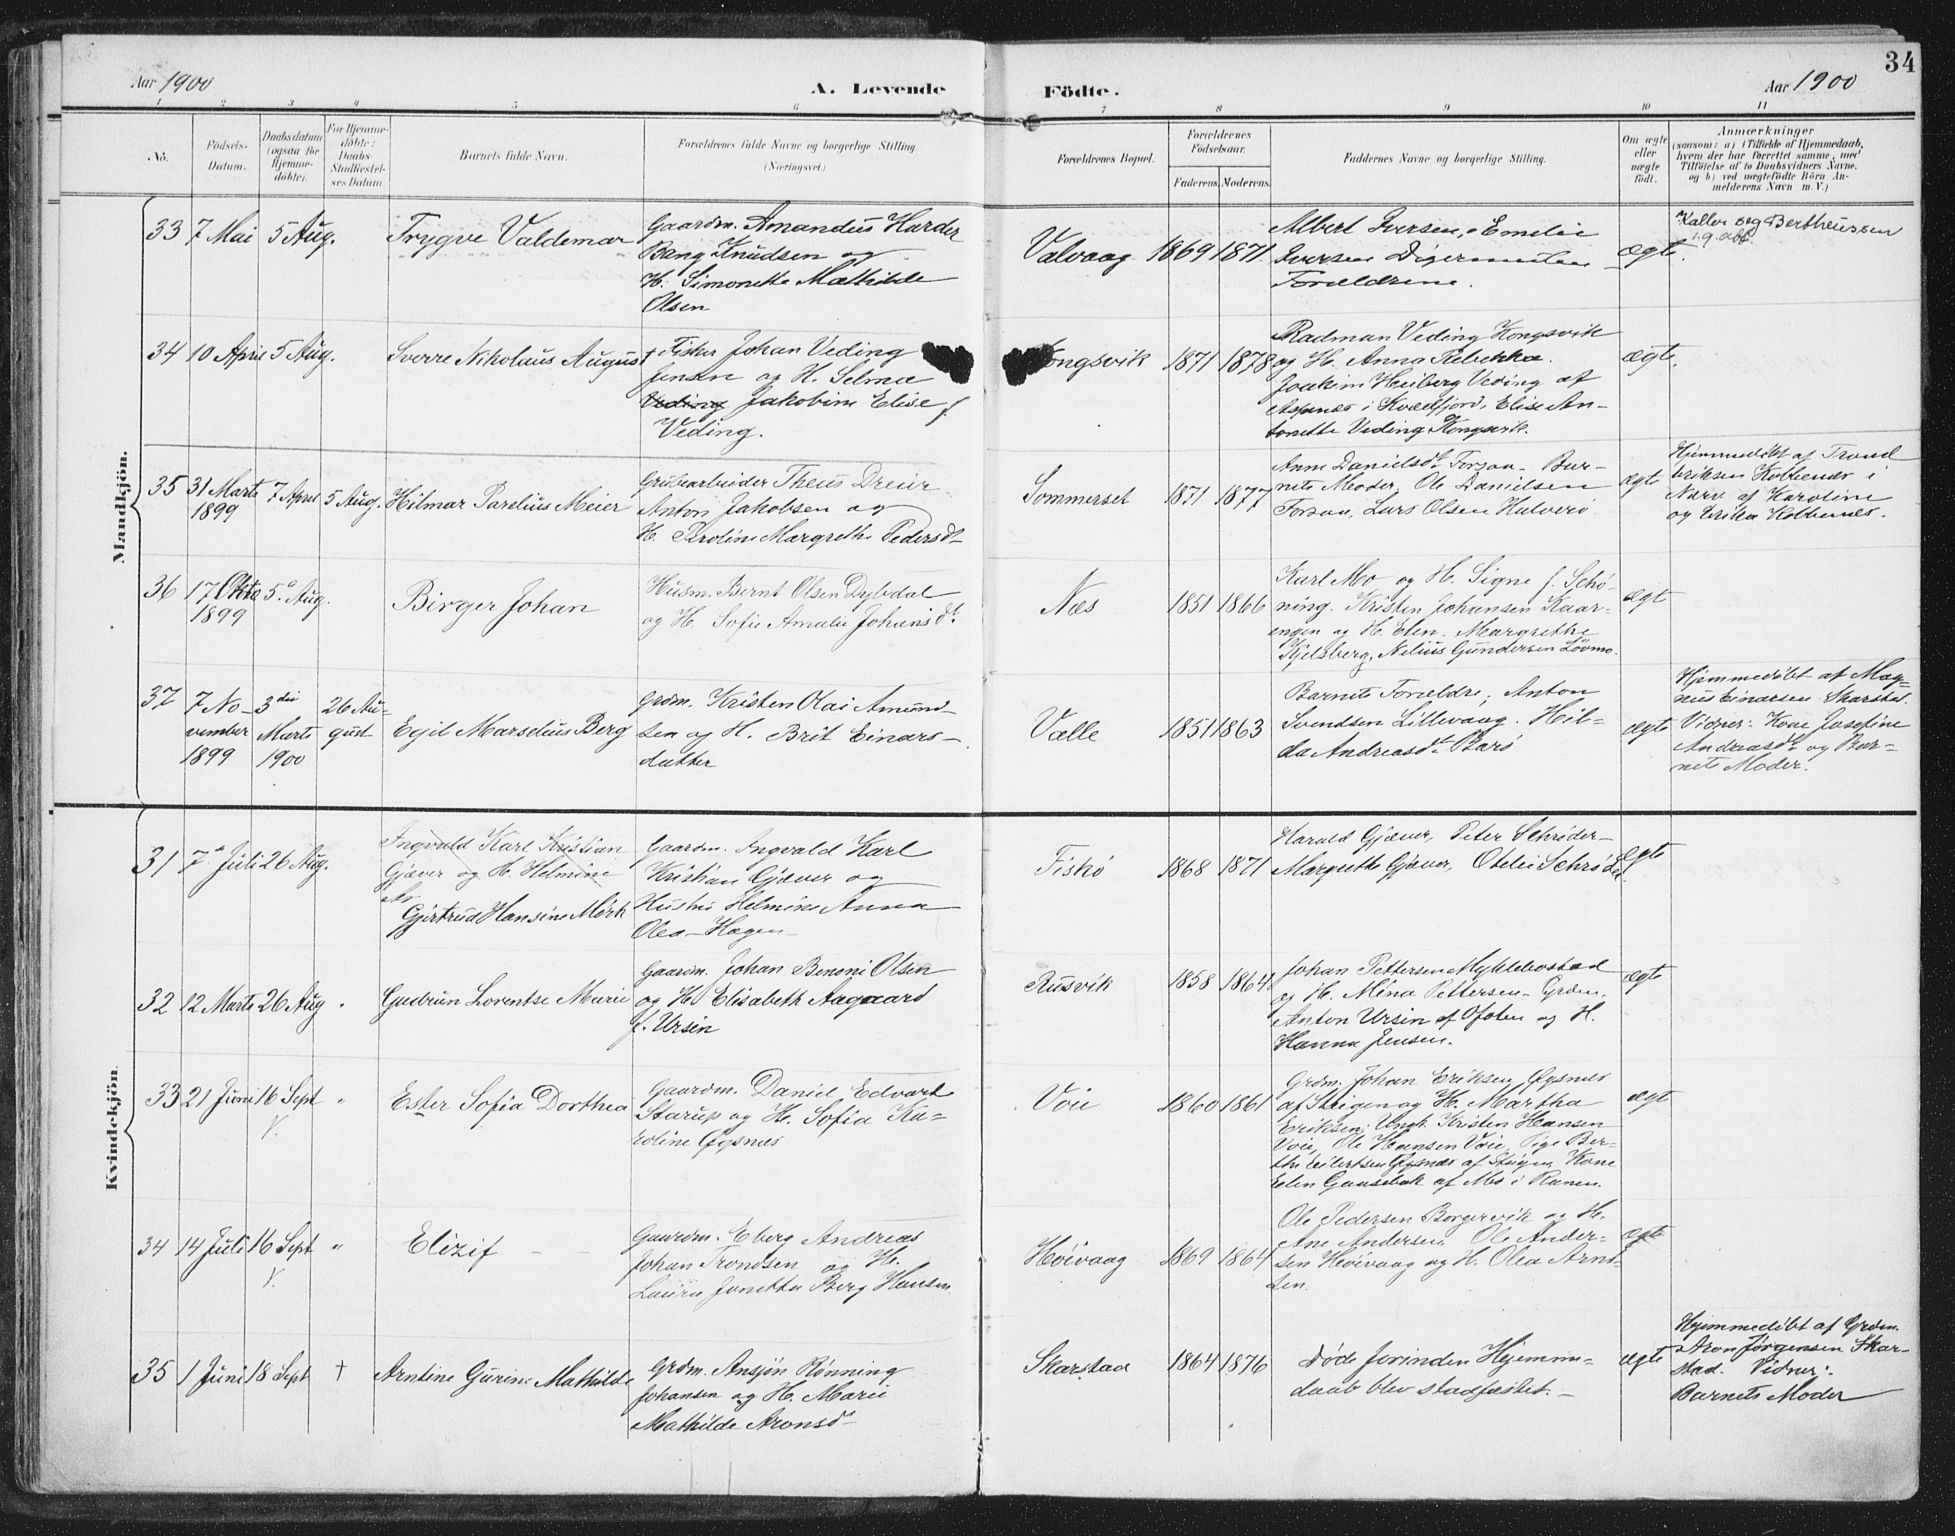 34
Aar 1900
A. Levende
Födte.
Aar 1900
1 2 3 4 5 6 7 8 9 10 11
No.
Födsels-
Datum.
Daabsdatum
(ogsaa for
Hjemme-
döbte).
For Hjemme-
döbte:
Daabs-
Stadfæstel-
ses Datum.
Barnets fulde Navn.
Forældrenes fulde Navne og borgerlige Stilling
(Næringsvei)
Forældrenes Bopæl.
Forældrenes
Födselsaar.
Faderens.
Moderens.
Faddernes Navne og borgerlige Stilling.
Om ægte
eller
uægte
födt.
Anmærkninger
(saasom: a) i Tilfælde af Hjemmedaab,
hvem der har forrettet samme, med
Tilföielse af to Daabsvidners Navne,
og b) ved uægtefödte Börn An-
melderens Navn m. V.)
Mandkjön.
33
7 Mai
5 Aug.
Trygve Valdemar
Gaardm. Amandus Harder
Bang Knudsen og
H. Simonette Mathilde
Olsen
Valvaag
1869
1871
Albert Iversen, Emelie
Iversen Digermulen
Forældrene.
ægte.
Kaller seg Bertheussen
34
10 April
5 Aug.
Sverre Nikolaus August
Fisker Johan Veding
Jensen og H. Selma
Veding Jakobine Elise f.
Veding.
Kongsvik
1871
1878
Radman Veding Kongsvik
og H. Anna Rebekka.
Joakim Heiberg Veding af
Aspnes i Kvædfjord, Elise An-
tonette Veding Kongsvik.
ægte.
35
31 Marts
1899
7 April
5 Aug.
Hilmar Parelius Meier
Grubearbeider Theus Dreier
Anton Jakobsen og
H. Peroline Margrethe Pedersdt
Sommerset
1871
1877
Anne Danielsdt Forsaa. Bar-
nets Moder, Ole Danielsen
Forsaa, Lars Olsen Halverö
ægte
Hjemmedöbt af Trond
Eriksen Kobbenes i
Nærv af Karoline
og Erika Kobbenes.
36
17 Okto
1899
5 Aug.
Birger Johan
Husm. Bernt Olsen Dybdal
og H. Sofie Amalie Johansdt.
Næs
1851
1866
Karl Mo og H. Signe f. Schö-
ning. Kristen Johansen Kaar-
engen og H. Elen. Margrethe
Kjelsberg, Nelius Gundersen Lövmo.
ægt
37
7 No-
vember
1899
3die
Marts
1900
26 Au-
gust
Egil Marselius Berg
Grdm. Kristen Olai Amund-
sen og H. Brit Einars-
datter
Valle
1851
1863
Barnets Forældre, Anton
Svendsen Lillevaag. Hil-
da Andreasdt Barö
ægte
Hjemmedöbt af Mag-
nus Einarsen Skarstad.
Vidner: Kone Josefine
Andreasdt og Bar-
nets Moder.
Kvindekjön.
31
7 Juli
26 Aug.
Ingvald Karl Kristian
Gjæver og H. Helmine
Gjertrud Hansine Mörk
Gaardm. Ingvald Karl
Kristian Gjæver og
Hustru Helmine Anna
Olea Hagen
Fiskö
1868
1871
Harald Gjæver, Peter Schröder
Margrethe Gjæver, Otelie Schröder
ægte
32
12 Marts
26 Aug
Gudrun Lorentse Marie
Gaardm. Johan Benoni Olsen
og H. Elisabeth Aagaard
f. Ursin
Rusvik
1858
1864
Johan Pettersen Myklebostad
og H. Mina Pettersen. Grdm.
Anton Ursin af Ofoten og H.
Hanna Jensen.
ægte
33
21 Juni
16 Sept
Ester Sofia Dorthea
Gaardm. Daniel Edvart
Starup og H. Sofia Ka-
roline Öysnes
Voie
1860
1861
Grdm. Johan Eriksen Öysnes
af Steigen og H. Martha
Eriksen, Ungk. Kristen Hansen
Voie, Ole Hansen Voie, Pige Ber-
the Eilertsen Öysnes af Steigen, Kone
Elen Gaasebak af Mo i Ranen.
ægt
34
14 Juli
16 Sept
Elizif
Gaardm. Eberg Andreas
Johan Trondsen og H.
Laura Janetta Berg Hansen
Höivaag
1869
1864
Ole Pedersen Borgervik og H.
Ane Andersen. Ole Ander-
sen Höivaag og H. Olea Arnt
sen.
ægte
35
1 Juni
18 Sept
†
Arntine Gurine Mathilde
Grdm. Ansjön Rönning
Johansen og H. Marie
Mathilde Aronsdt
Skarstad
1864
1876
Döde forinden Hjemme-
daab blev stadfæstet.
ægte
Hjemmedöbt af Grdm.
Aron Jörgensen Skar-
stad. Vidner:
Barnets Moder